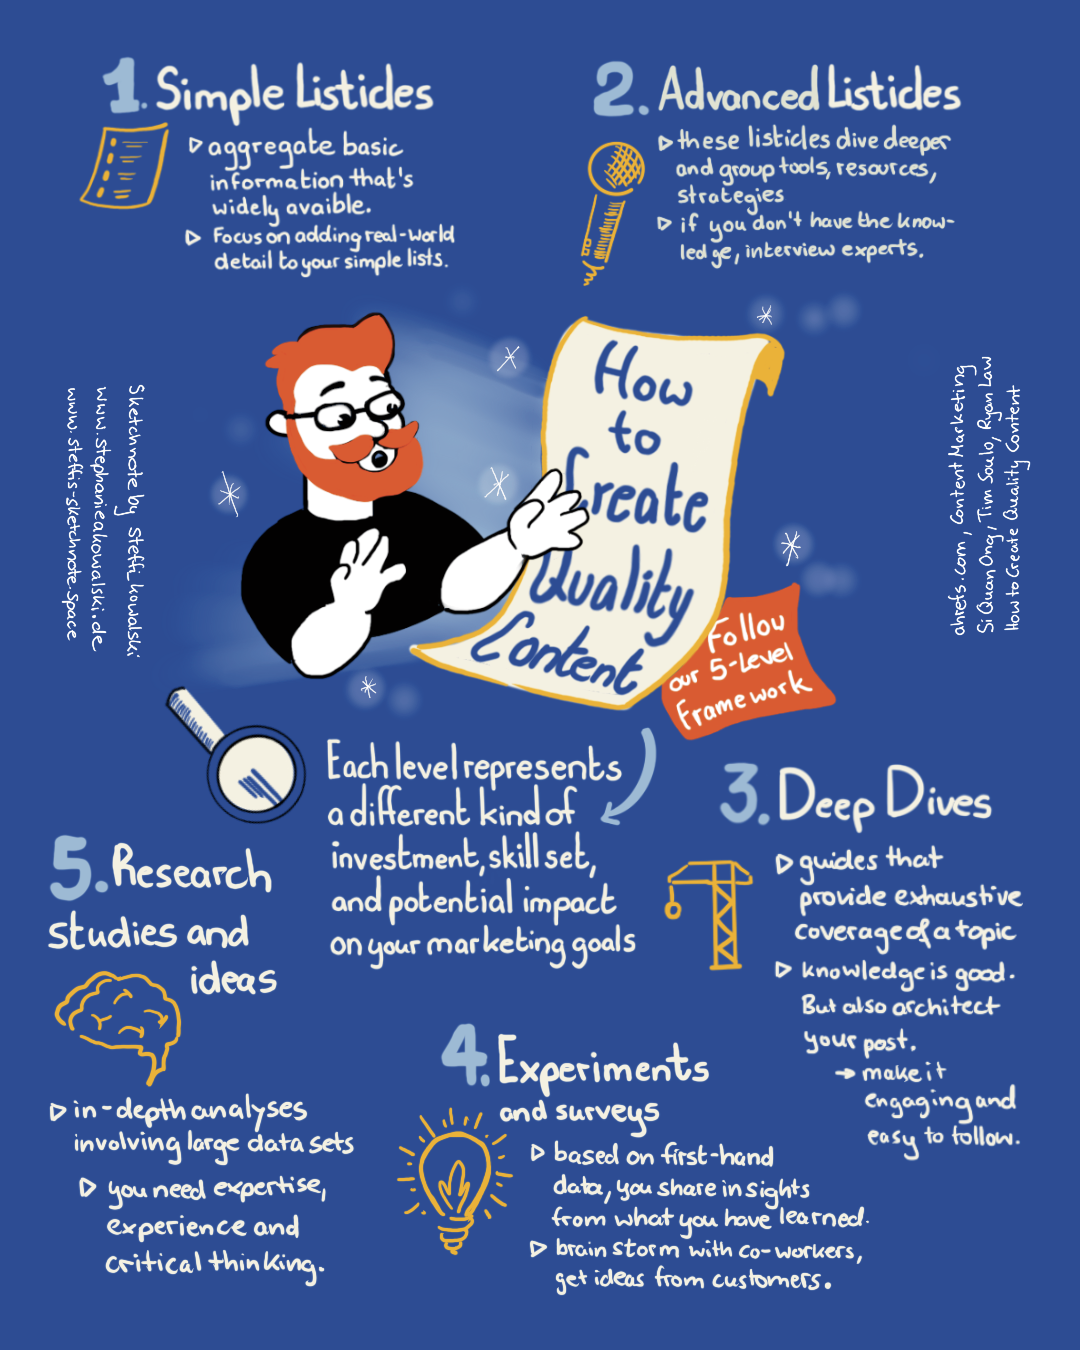 1. Simple Listicles
▷ aggregate basic
information that's
widely avaible.
▷ Focus on adding real-world
detail to your simple lists.
2. Advanced Listicles
▷ these listicles dive deeper
and group tools, resources,
strategies
▷ if you don't have the know-
ledge, interview experts.
How
to
Create
Quality
Content
Follow
our 5-Level
Framework
Sketchnote by Steffi Kowalski
www.stephaniekowalski.de
www.steffis-sketchnote.space
ahrefs.com, Content Marketing
Si Quan Ong, Tim Soulo, Ryan Law
How to Create Quality Content
Each level represents
a different kind of
investment, skill set,
and potential impact
on your marketing goals
3. Deep Dives
▷ guides that
provide exhaustive
coverage of a topic
▷ knowledge is good.
But also architect
your post.
→ make it
engaging and
easy to follow.
4. Experiments
and surveys
▷ based on first-hand
data, you share insights
from what you have learned.
▷ brain storm with co-workers,
get ideas from customers.
5. Research
studies and
ideas
▷ in-depth analyses
involving large data sets
▷ you need expertise,
experience and
critical thinking.